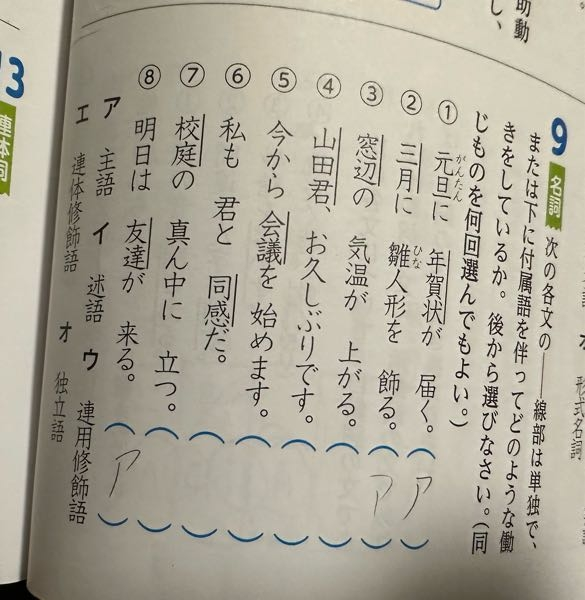 助動
し、
オ 形式名詞
9 名詞 次の各文の――線部は単独で、
または下に付属語を伴ってどのような働
きをしているか。後から選びなさい。(同
じものを何回選んでもよい。)
① 元旦に 年賀状が 届く。(ア)
がんたん
② 三月に 雛人形を 飾る。(ア)
ひな
③ 窓辺の 気温が 上がる。( )
④ 山田君、お久しぶりです。( )
⑤ 今から 会議を 始めます。( )
⑥ 私も 君と 同感だ。( )
⑦ 校庭の 真ん中に 立つ。( )
⑧ 明日は 友達が 来る。(ア)
ア 主語 イ 述語 ウ 連用修飾語
エ 連体修飾語 オ 独立語
13 連体詞